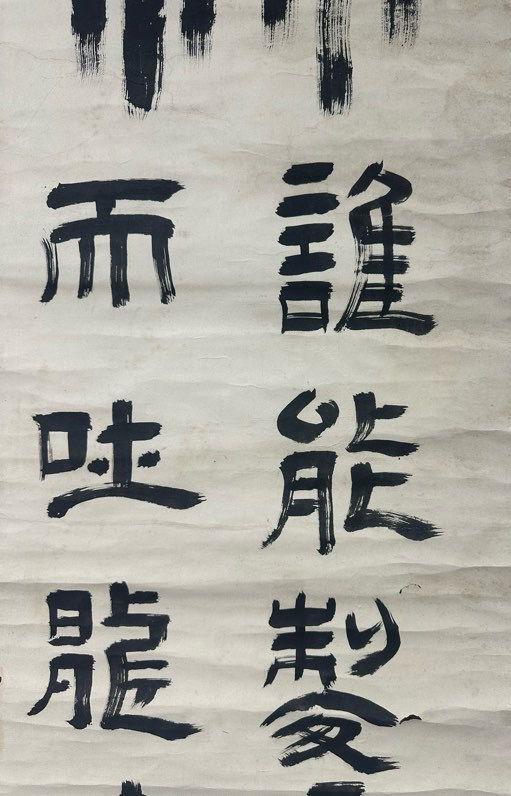 誰能製
而吐龍